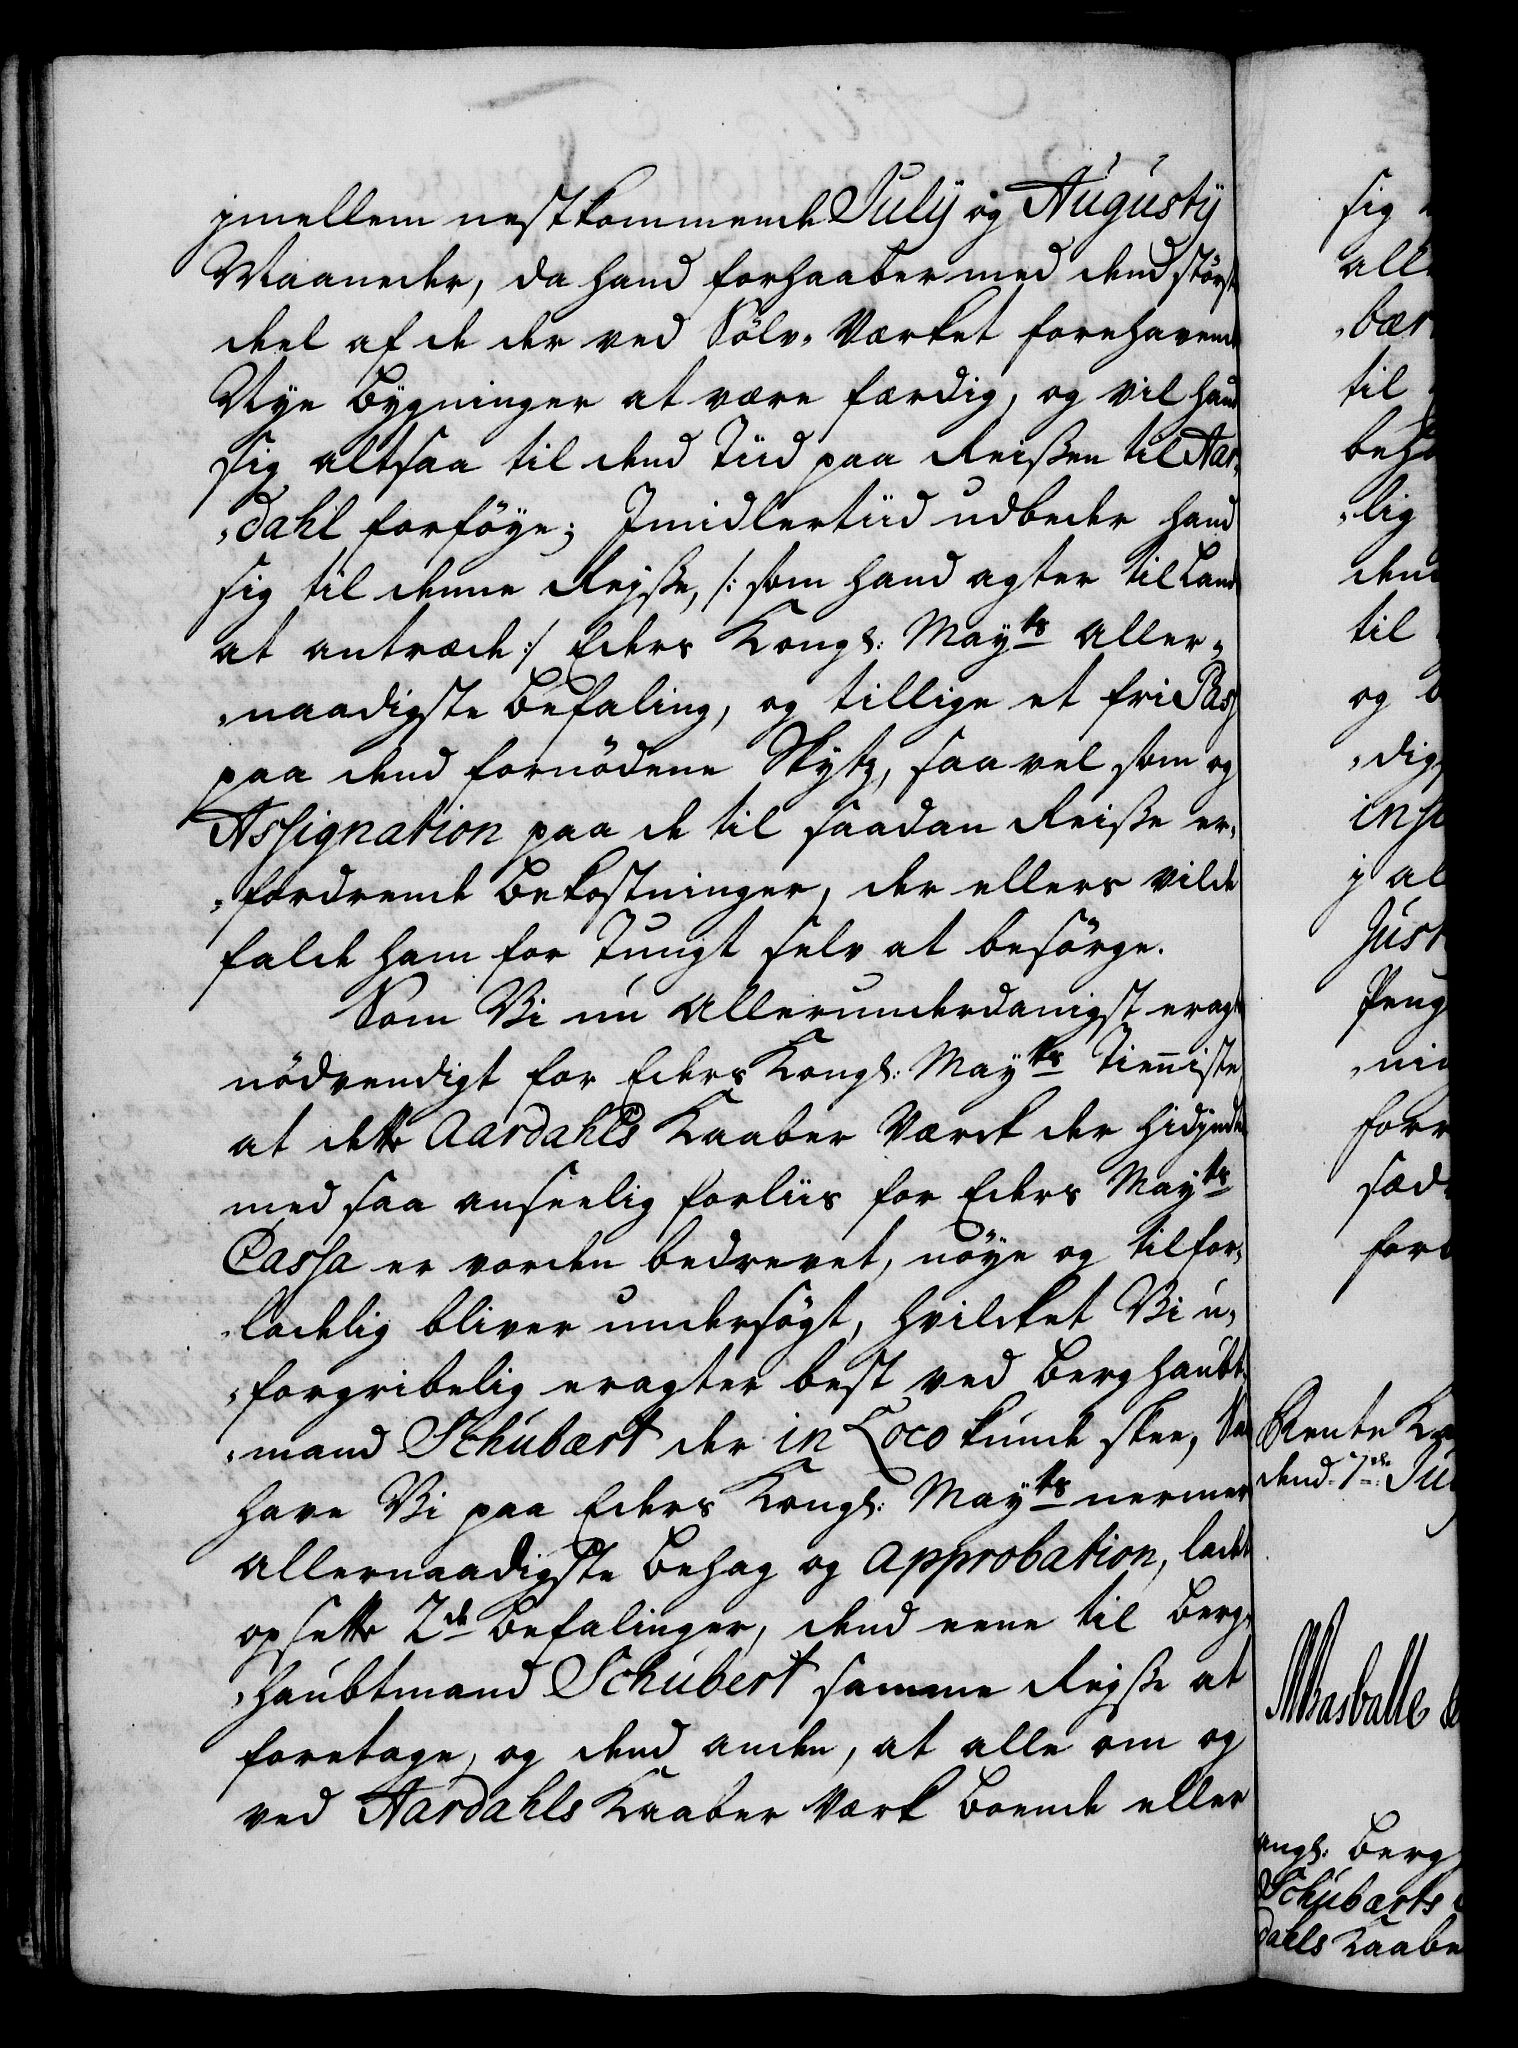 jmellem nestkommende Julij og Augustij
Maaneder, da hand forhaaber med dend störste
deel af de der ved Sölv-Værket forehavende
Nÿe Bÿgninger at være færdig, og vil hand
sig altsaa til dend Tiid paa Reißen til Aar-
-dahl forföÿe; Jmidlertiid udbeder hand
sig til denne Rejße, /: som hand agter til Lands
at antræde :/ Eders Kongl: Mayts Aller-
-naadigste Befaling, og tillige et fri Pass
paa dend fornödene Skÿtz, saa vel som og
Assignation paa de til saadan Reiße er-
-fordrende Bekostninger, der ellers vilde
falde ham for Tungt selv at besörge.
Som Vi nu Allerunderdanigst eragte
nödvendigt for Eders Kongl: Mayts Tienniste
at dette Aardahls Kaaber Værck der hidjndtil
med saa anseelig forliis for Eders Mayts
Cassa er vorden bedrevet, nöÿe og tilfor-
-ladelig bliver undersögt, hvilcket Vi u-
-forgribelig eragter best ved Berghaubt-
-mand Schubært der in Loco kunde skee, Saa
have Vi paa Eders Kongl: Mayts nermere
Allernaadigste Behag og Approbation, ladet
opsette 2de Befalinger, dend eene til Berg-
-haubtmand Schubert samme Rejße at
foretage, og dend anden, at alle om og
ved Aardahls Kaaber Værk boende eller
sig
alle
-bær
til
beho
-lig
dend
til
og
-dig
inst
j al
Just
Peng
-nin
forr
sæd
ford
Rente Ka
dend 7de Ju
angl: Berg
Schubærts
dahls Kaabe